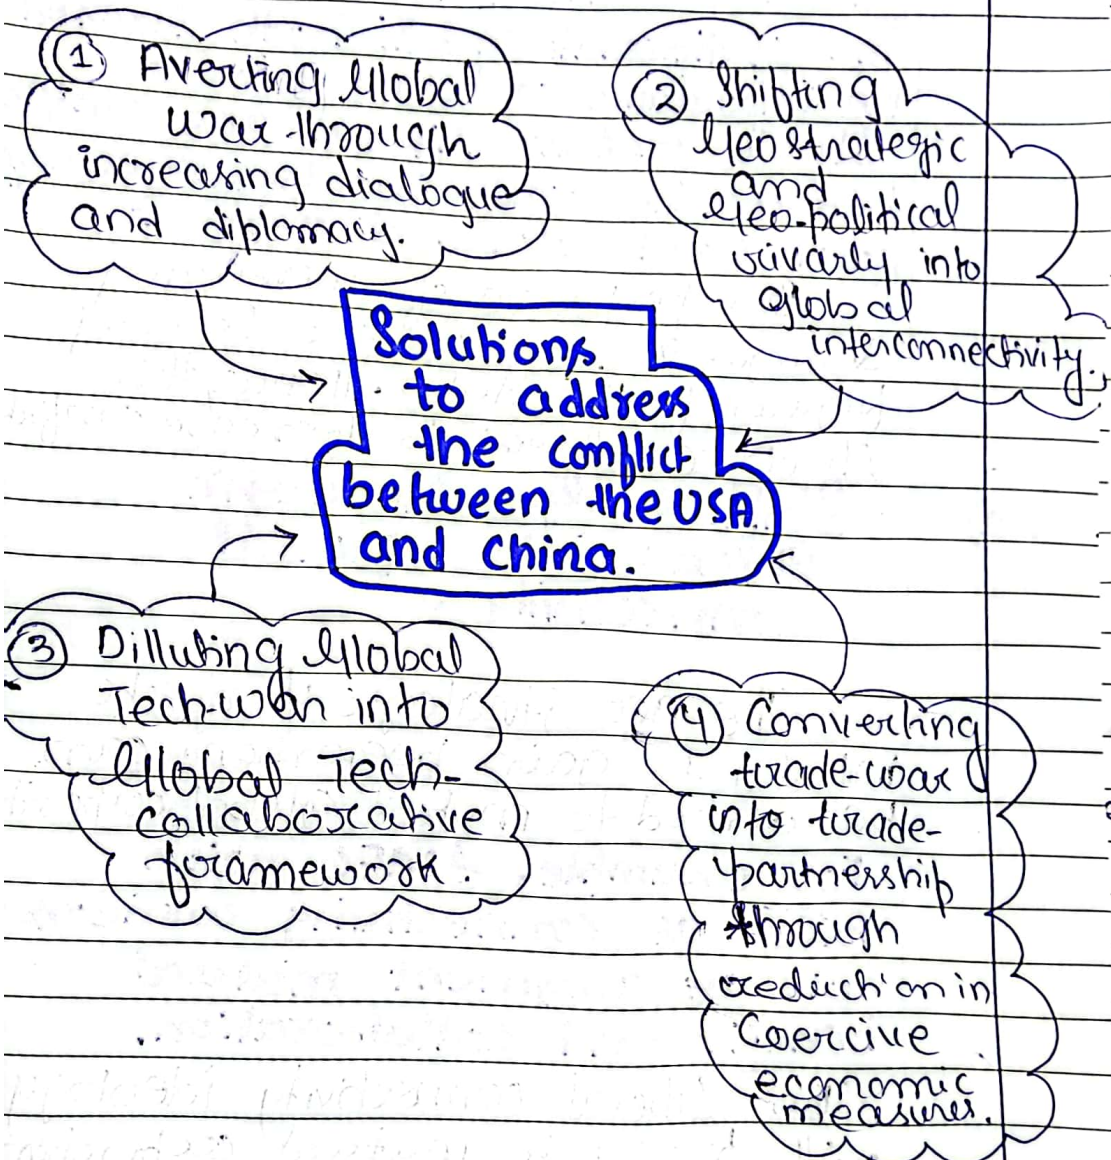 ① Averting Global
war through
increasing dialogue
and diplomacy.
② Shifting
Geostrategic
and
Geo-political
rivarly into
global
interconnectivity.
Solutions
to address
the conflict
between the USA
and China.
③ Dilluting Global
Tech-war into
Global Tech-
collaborative
framework.
④ Converting
trade-war
into trade-
partnership
through
reduction in
Coercive
economic
measures.